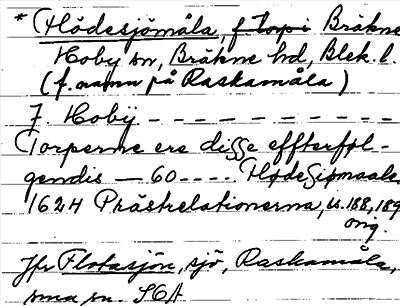 * Hödesjömåla, f. torp i Bräkne
Hoby sn, Bräkne hd, Blek. l.
(f. namn på Raskamåla)
J. Hoby - - - - - - - - - -
Torperne ere disse effterføl-
gendis — 60 - - - - Hødesiømaale
1624 Prästrelationerna, s. 188, 189
orig.
Jfr Flotasjön, sjö, Raskamåla,
sma sn. SOA